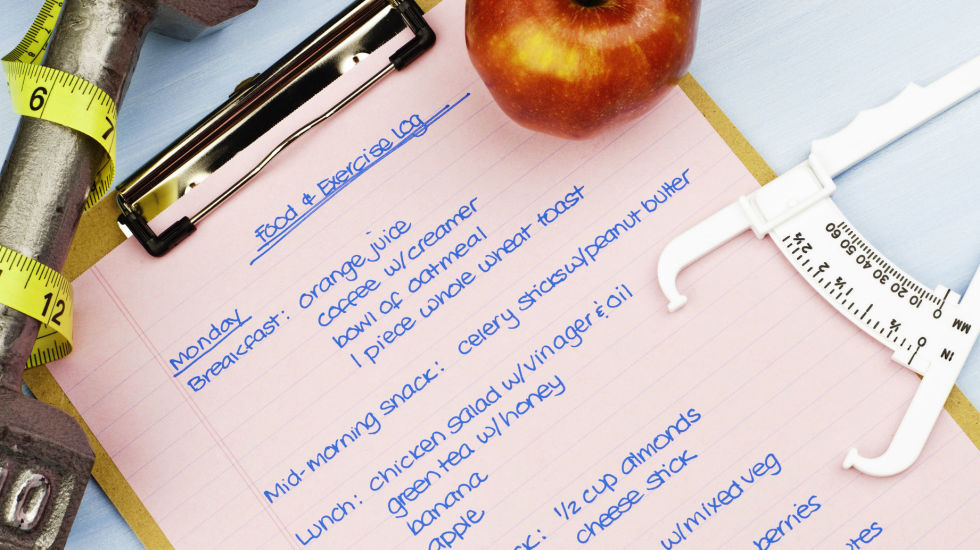 Food & Exercise log
Monday
Breakfast: orange juice
coffee w/creamer
bowl of oatmeal
1 piece whole wheat toast
Mid-morning snack: celery sticks w/peanut butter
Lunch: chicken salad w/vinager & oil
green tea w/honey
banana
apple
1/2 cup almonds
cheese stick
w/mixed veg
berries
6
7
12
10
60 50 40 30 20 10 0
MM
2½ 2 1½ 1 ½ 0
IN